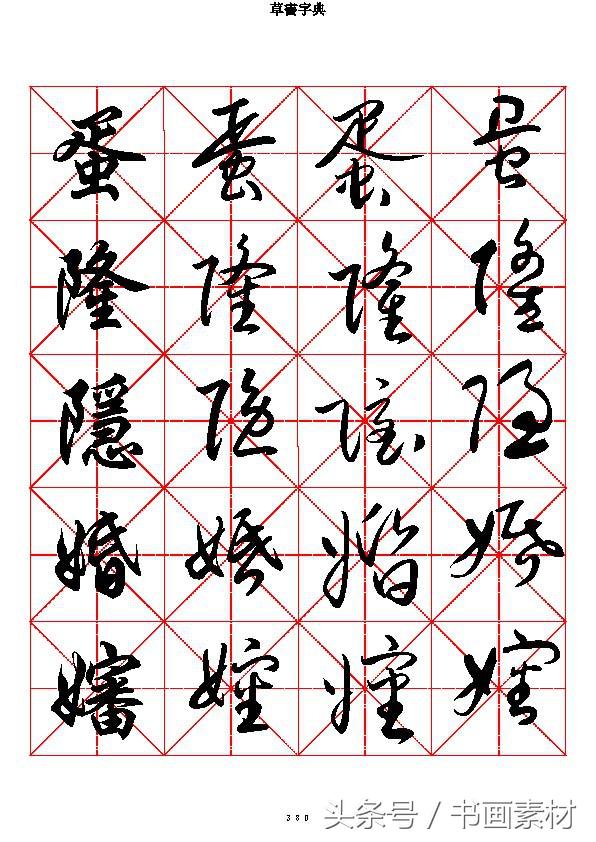 草書字典
蛋 蛋 蛋 蛋
隆 隆 隆 隆
隱 隱 隱 隱
婚 婚 婚 婚
嬸 嬸 嬸 嬸
380
头条号 / 书画素材